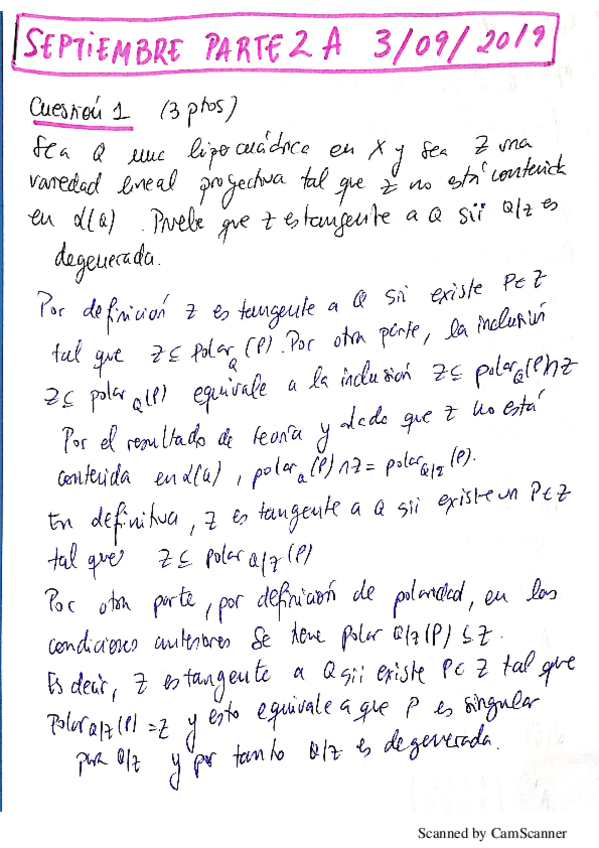 SEPTIEMBRE PARTE 2 A 3/09/2019
Cuestión 1 (3 ptos)
Sea Q una hipocuádrica en X y sea Z una
variedad lineal proyectiva tal que Z no está contenida
en α(Q). Pruebe que Z es tangente a Q sii Q/Z es
degenerada.
Por definición Z es tangente a Q sii existe P∈Z
tal que Z⊆ Polar_Q(P). Por otra parte, la inclusión
Z⊆ polar_Q(P) equivale a la inclusión Z⊆ polar_Q(P)∩Z
Por el resultado de teoría y dado que Z no está
contenida en α(Q), polar_Q(P)∩Z = polar_Q/Z(P).
En definitiva, Z es tangente a Q sii existe un P∈Z
tal que Z⊆ polar_Q/Z(P)
Por otra parte, por definición de polaridad, en las
condiciones anteriores se tiene Polar Q/Z(P) ⊆ Z.
Es decir, Z es tangente a Q sii existe P∈Z tal que
Polar_Q/Z(P) = Z y esto equivale a que P es singular
para Q/Z y por tanto Q/Z es degenerada.
Scanned by CamScanner